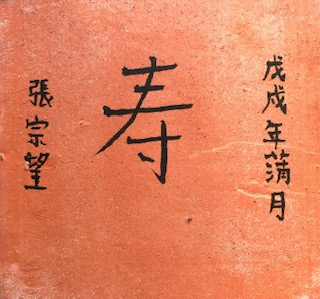 戊戌年蒲月
寿
張宗望